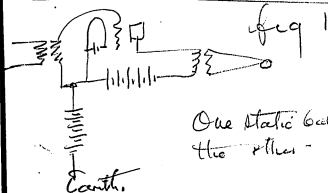 fig 1
One static
the other -
Earth.